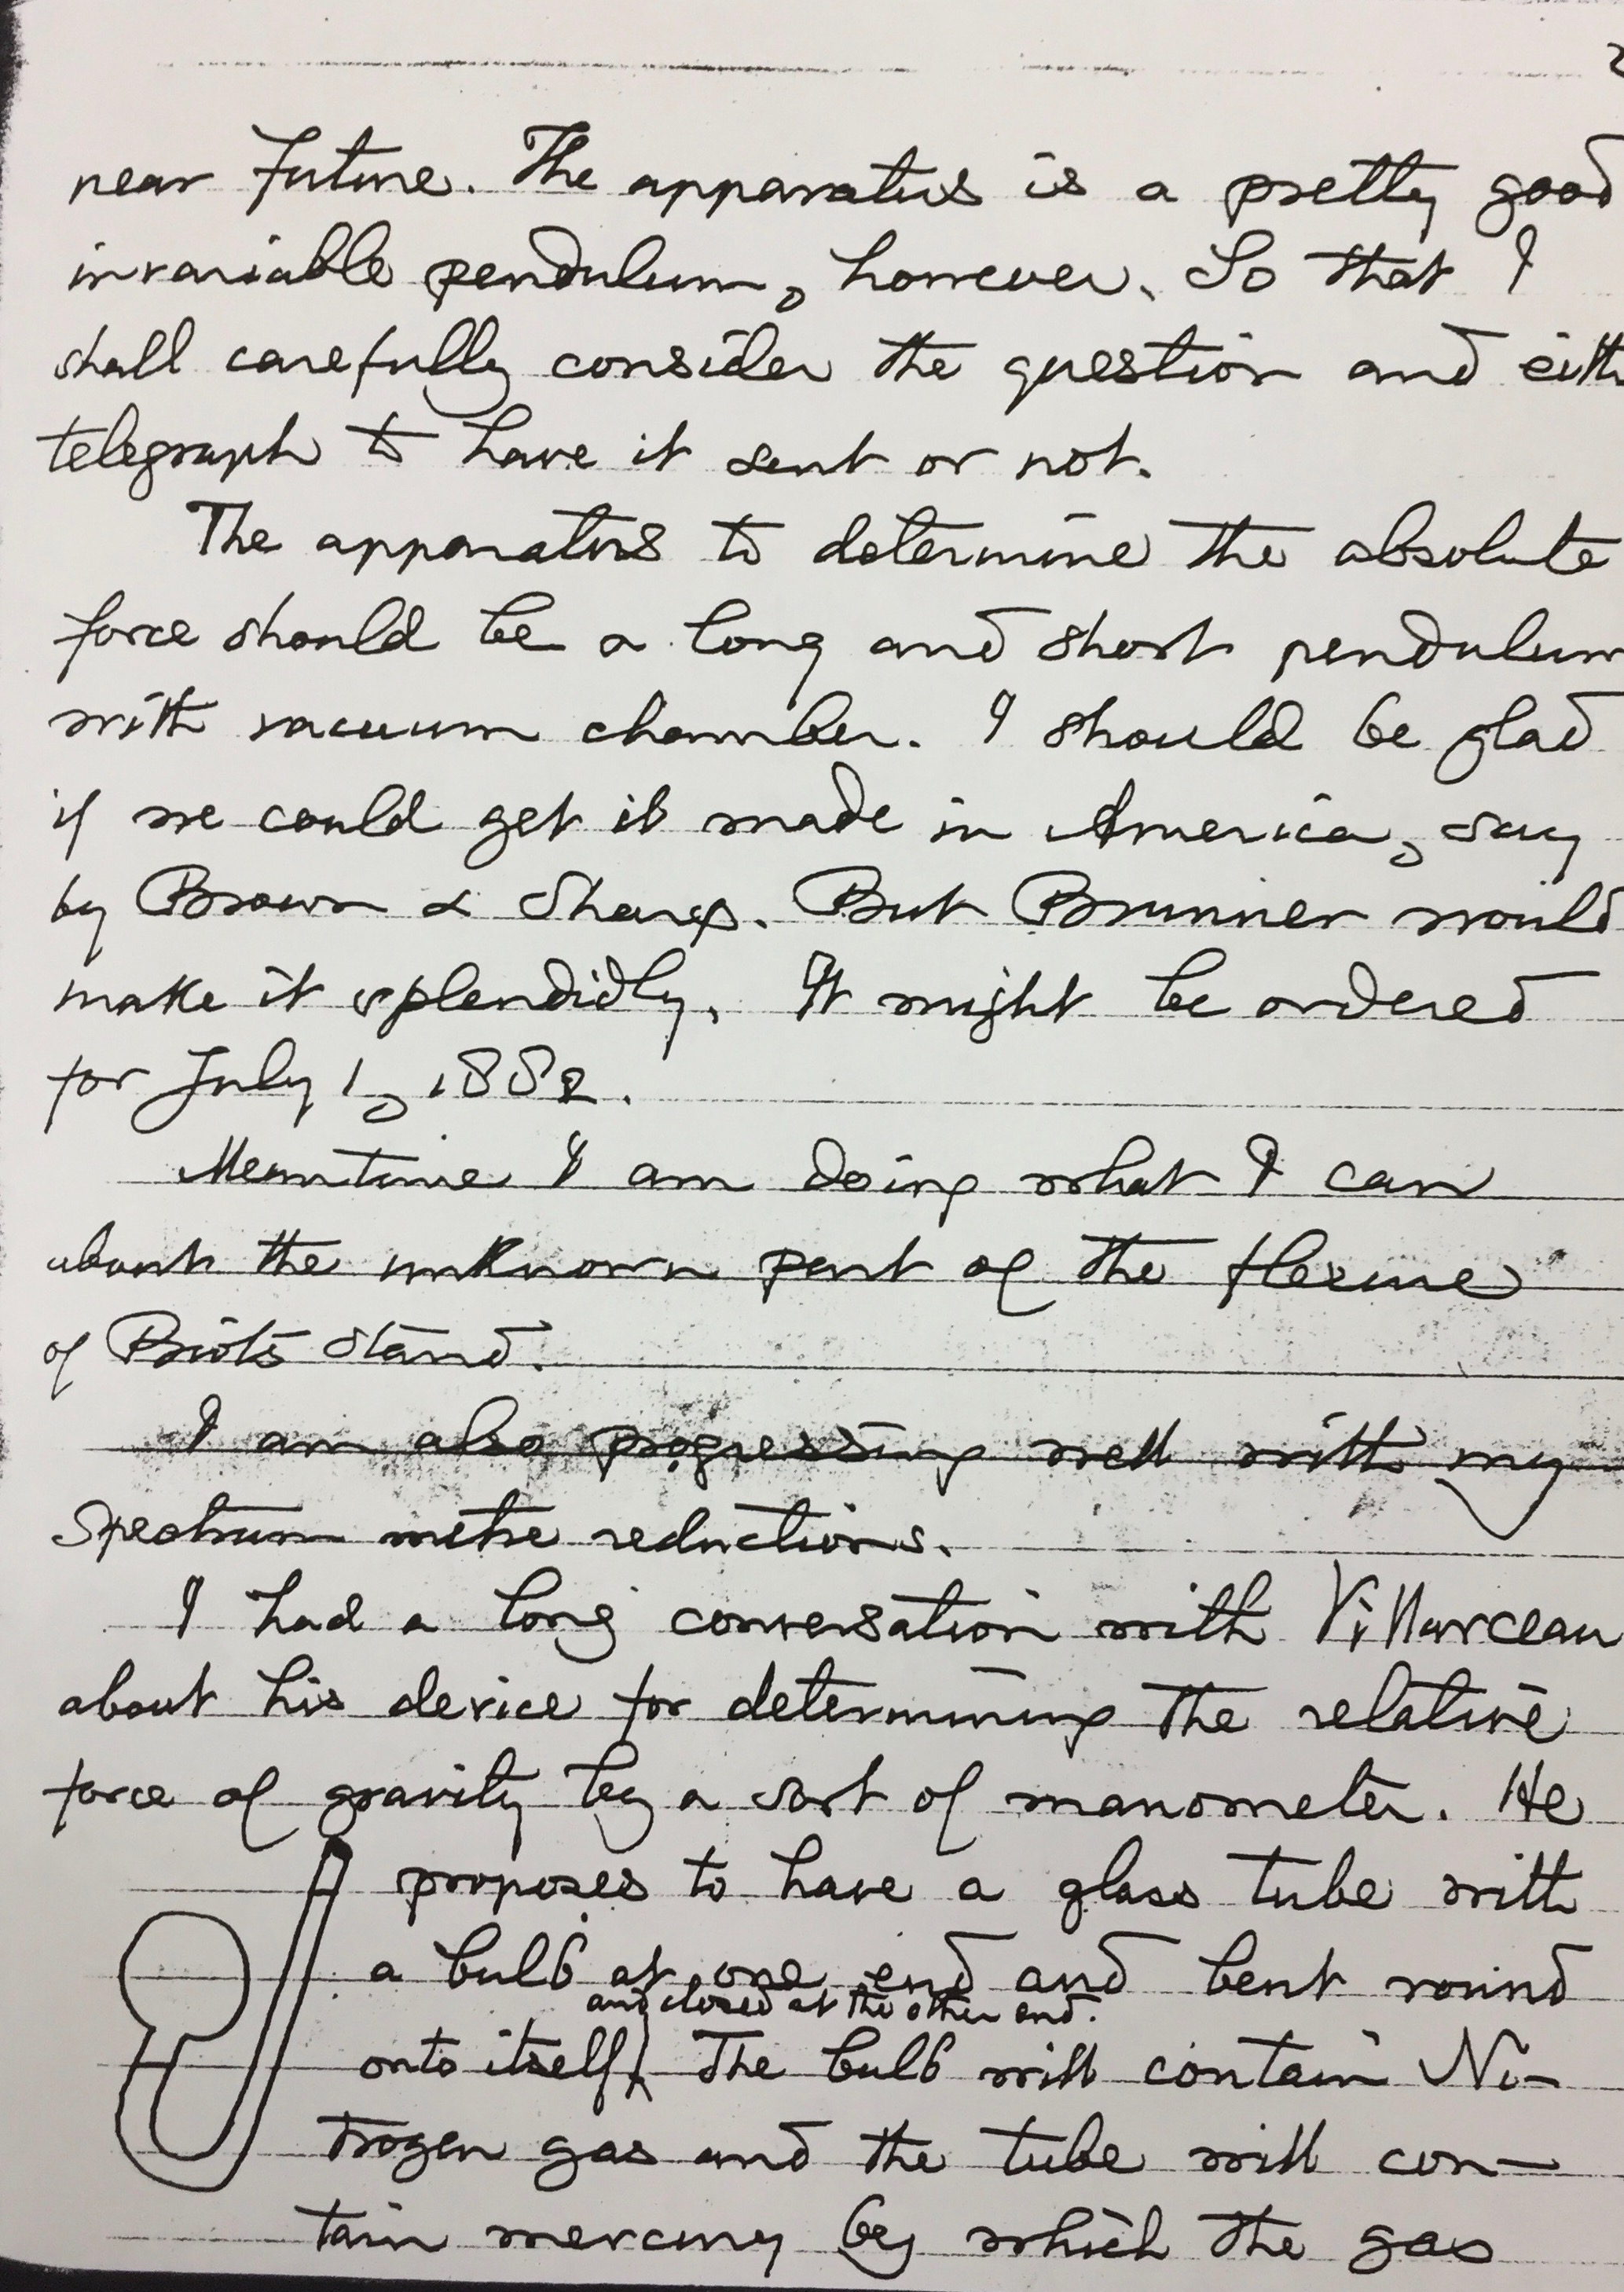 2
near future. The apparatus is a pretty good
invariable pendulum, however. So that I
shall carefully consider the question and eith
telegraph to have it sent or not.
The apparatus to determine the absolute
force should be a long and short pendulum
with vacuum chamber. I should be glad
if we could get it made in America, say
by Brown & Sharp. But Brunner would
make it splendidly. It might be ordered
for July 1, 1882.
Meantime I am doing what I can
about the unknown part of the flexure
of Biot's stand.
I am also progressing well with my
spectrum metre reductions.
I had a long conversation with Villarceau
about his device for determining the relative
force of gravity by a sort of manometer. He
proposes to have a glass tube with
a bulb at one end and bent round
and closed at the other end.
onto itself. The bulb will contain Ni-
trogen gas and the tube will con-
tain mercury by which the gas